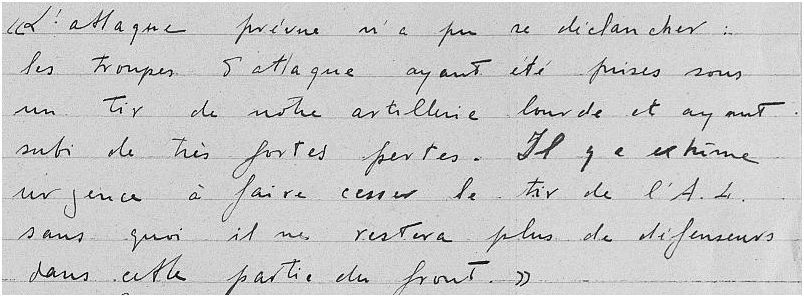 «L'attaque prévue n'a pu se déclancher :
les troupes d'attaque ayant été prises sous
un tir de notre artillerie lourde et ayant
subi de très fortes pertes. Il y a extrême
urgence à faire cesser le tir de l'A.L.
sans quoi il ne restera plus de défenseurs
dans cette partie du front.»